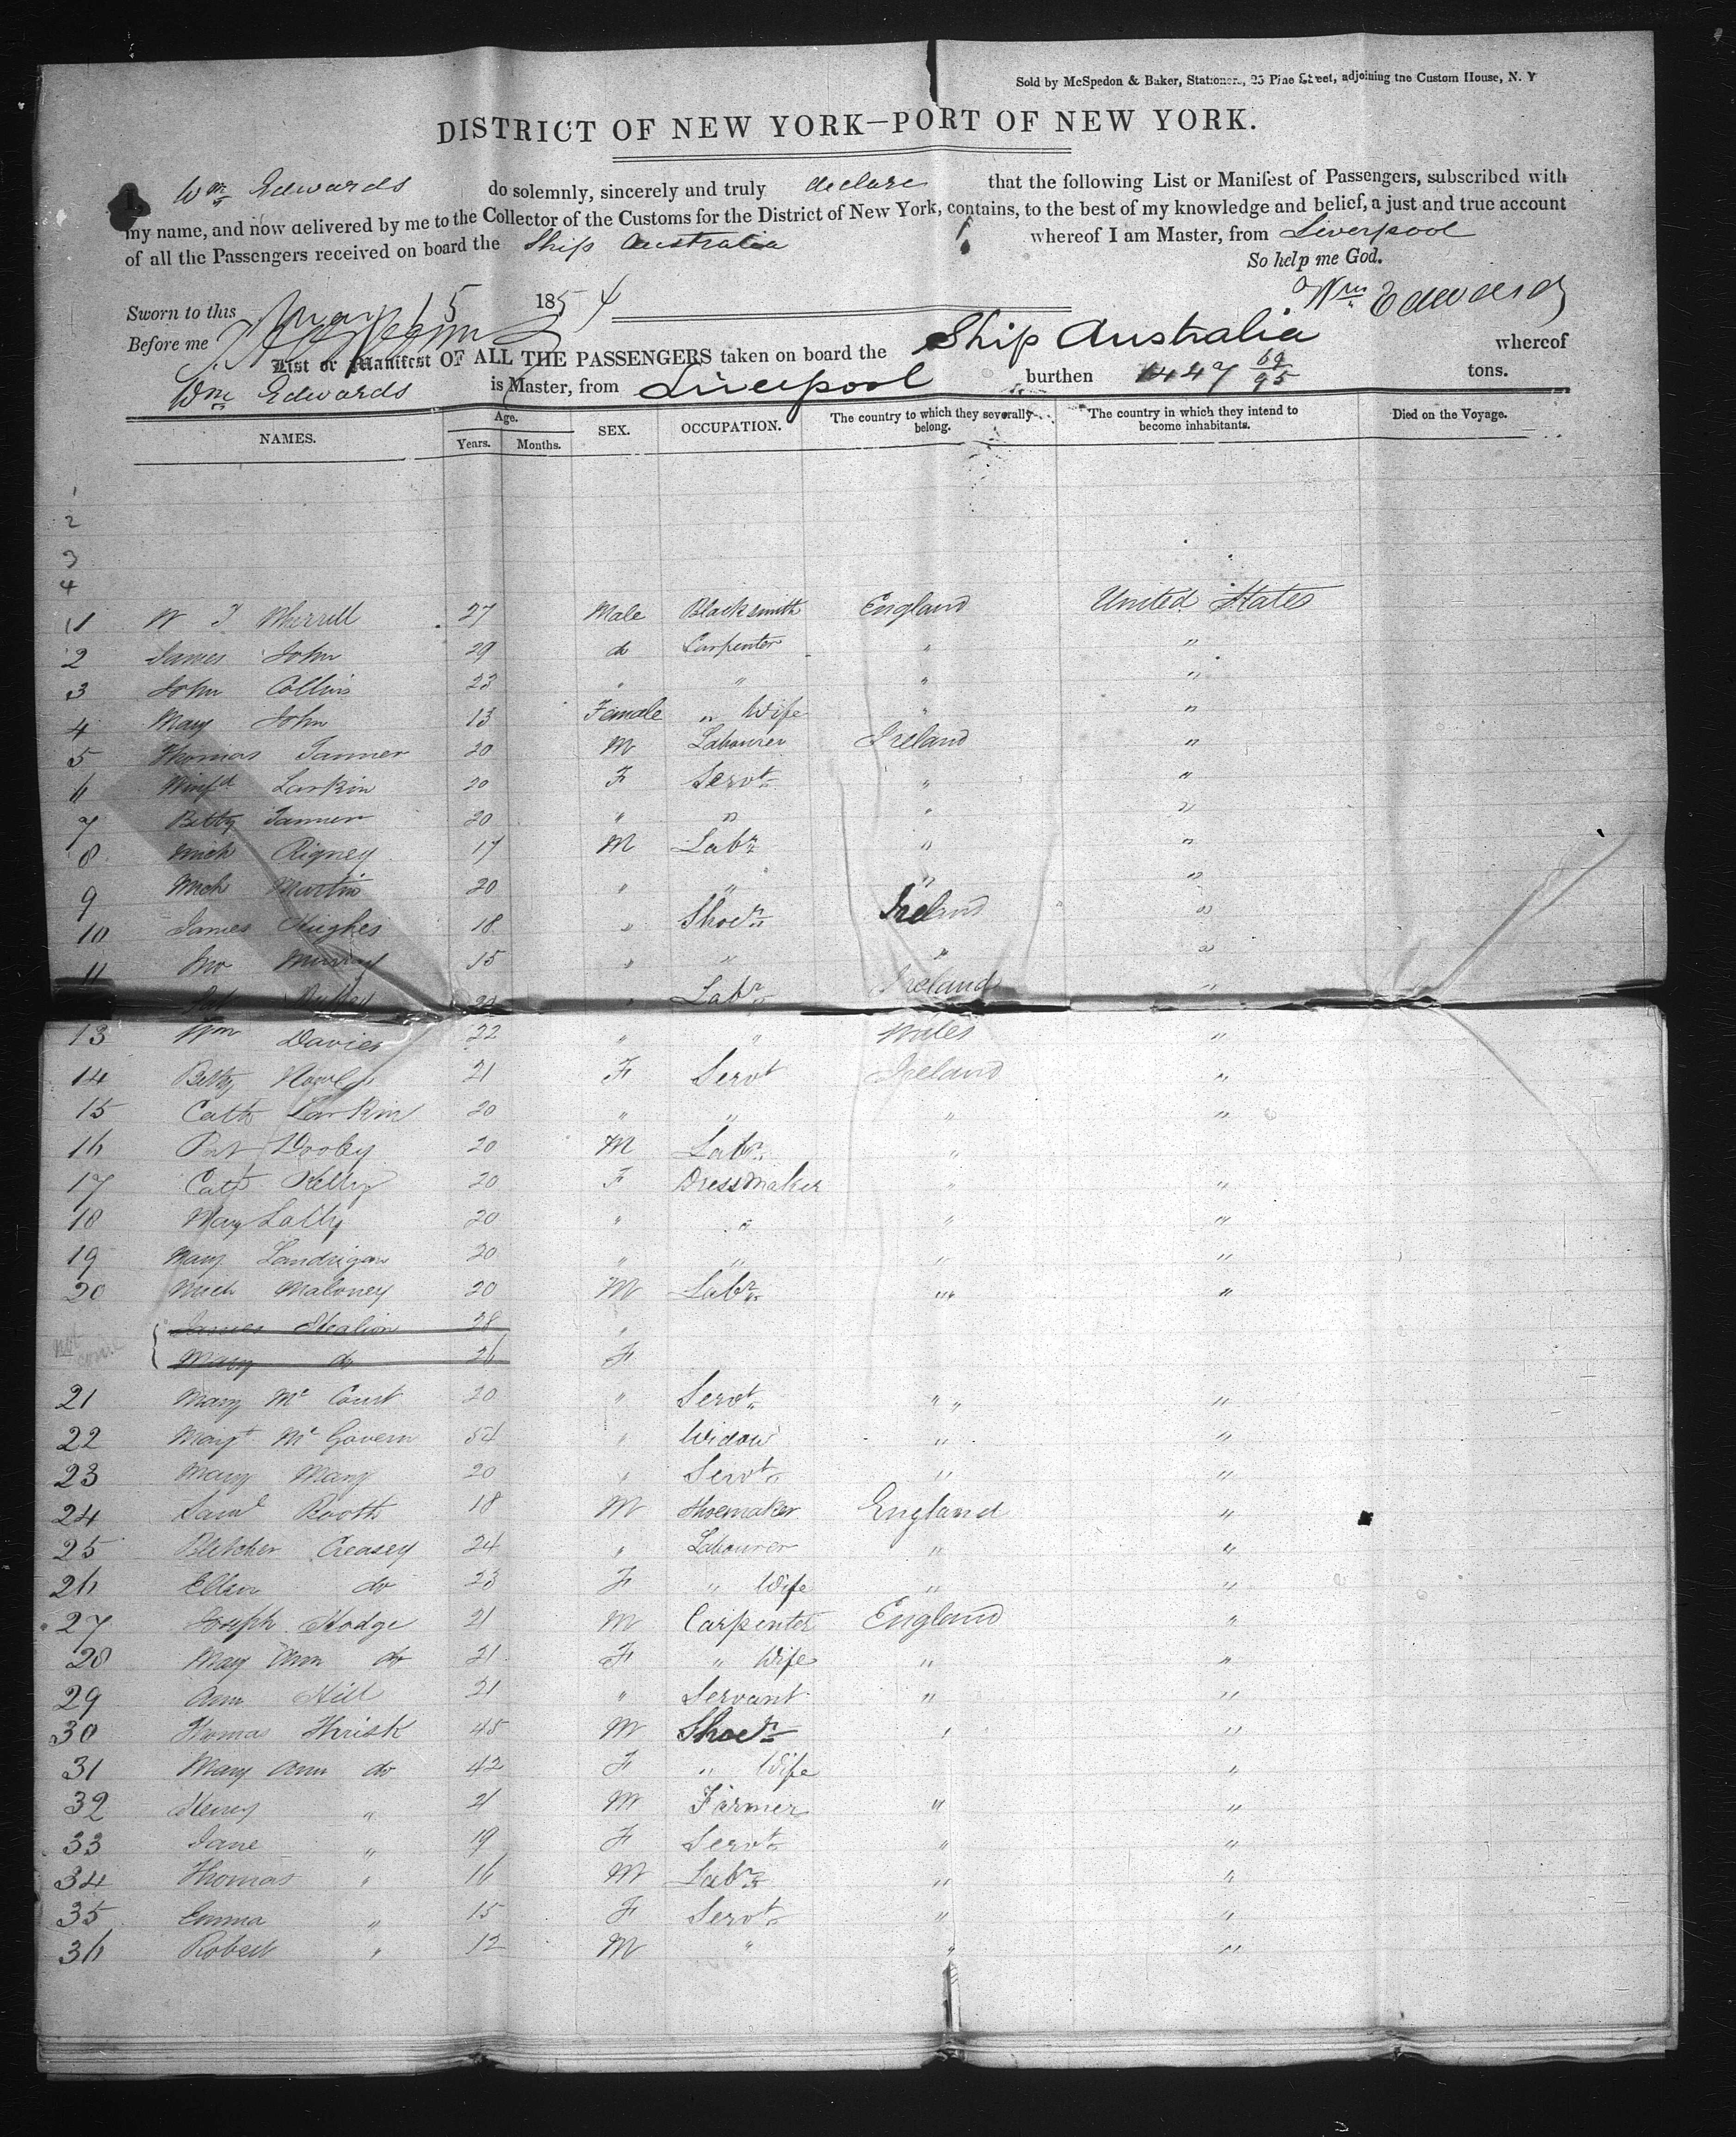 Sold by McSpedon & Baker, Stationers, 25 Pine Street, adjoining the Custom House, N. Y
DISTRICT OF NEW YORK—PORT OF NEW YORK.
I, Wm Edwards do solemnly, sincerely and truly declare that the following List or Manifest of Passengers, subscribed with
my name, and now delivered by me to the Collector of the Customs for the District of New York, contains, to the best of my knowledge and belief, a just and true account
of all the Passengers received on board the Ship Australia whereof I am Master, from Liverpool
So help me God.
Sworn to this May 15 1854 Wm Edwards
Before me
List or Manifest OF ALL THE PASSENGERS taken on board the Ship Australia whereof
Wm Edwards is Master, from Liverpool burthen 1447 69/95 tons.
NAMES. Age. Years. Months. SEX. OCCUPATION. The country to which they severally belong. The country in which they intend to become inhabitants. Died on the Voyage.
1
2
3
4
1 W Whirrell 27 Male Blacksmith England United States
2 James John 29 do Carpenter " "
3 John Collins 23 " " " "
4 Mary John 13 Female " Wife " "
5 Thomas Tanner 20 M Labourer Ireland "
6 Winfd Larkin 20 F Servt " "
7 Betty Tanner 20 " " " "
8 Mich Rigney 17 M Labr " "
9 Mich Martin 20 " " " "
10 James Hughes 18 " Shoer Ireland "
11 Jno Murray 15 " " " "
" Labr Ireland "
13 Wm Davies 22 " " Wales "
14 Betty 21 F Servt Ireland "
15 Cath Larkin 20 " " " "
16 Pat Dooley 20 M Labr " "
17 Cath Kelly 20 F Dressmaker " "
18 Mary Lally 20 " " " "
19 Mary Landrigan 20 " " " "
20 Mich Maloney 20 M Labr " "
not come James 28 "
Mary do 26 F
21 Mary Mc Court 20 " Servt " " "
22 Margt Mc Govern 54 " Widow " "
23 Mary Mary 20 " Servt " "
24 Saml Booth 18 M Shoemaker England "
25 Bletcher Creasey 24 " Labourer " "
26 Ellen do 23 F " Wife " "
27 Joseph Hodge 21 M Carpenter England "
28 Mary Ann do 21 F " Wife " "
29 Ann Hill 21 " Servant " "
30 Thomas Thrisk 45 M Shoer " "
31 Mary Ann do 42 F " Wife "
32 Henry " 21 M Farmer " "
33 Jane " 19 F Servt " "
34 Thomas " 16 M Labr " "
35 Emma " 15 F Servt " "
36 Robert " 12 M " " "